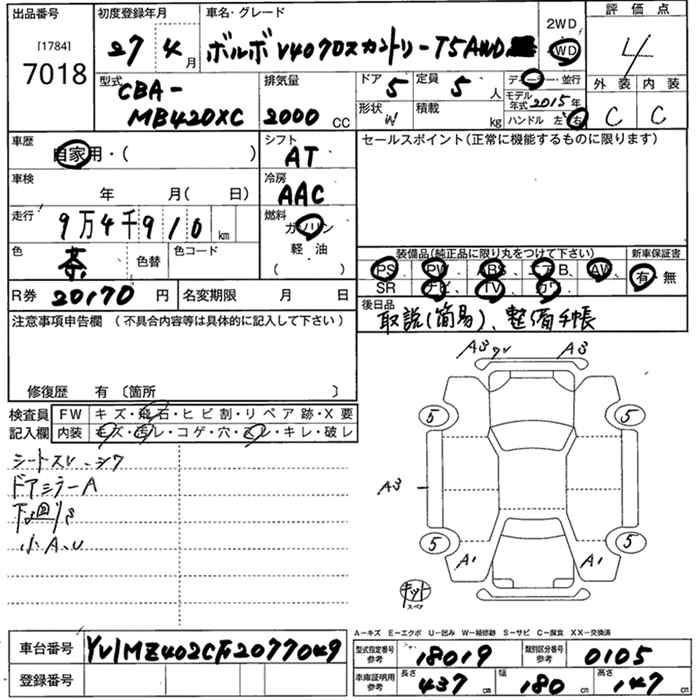 出品番号
[1784]
7018
初度登録年月
27 4月
車名・グレード
ボルボ V40クロスカントリーT5AWD
2WD
4WD
評価点
4
外装 内装
C C
型式
CBA-
MB420XC
排気量
2000 CC
ドア 5
定員 5 人
形状
積載 kg
ディーラー・並行
モデル年式 2015年
ハンドル 左・右
車歴
自家用・( )
シフト
AT
セールスポイント(正常に機能するものに限ります)
車検
年 月( 日)
冷房
AAC
走行
9万4千910 km
燃料
ガソリン
軽・油
( )
色
茶
色替
色コード
装備品(純正品に限り丸をつけて下さい)
新車保証書
PS PW ABS エアB AW
SR ナビ TV カワ
有・無
R券 20170 円
名変期限 月 日
後日品
取説(簡易)、整備手帳
注意事項申告欄(不具合内容等は具体的に記入して下さい)
修復歴 有〔箇所 〕
検査員
記入欄
FW キズ・飛石・ヒビ割・リペア跡・X要
内装 キズ・汚レ・コゲ・穴・スレ・キレ・破レ
シートスレ・シワ
ドアミラーA
下回りS
小A.U
A3 A3
5 5
A3
5 5
A1 A1
キット
スペア
A−キズ E−エクボ U−凹み W−補修跡 S−サビ C−腐食 XX−交換済
車台番号 YV1MZ402CF2077049
登録番号
型式指定番号
参考
18019
類別区分番号
参考
0105
車庫証明用
参考
長さ 437 cm
幅 180 cm
高さ 147 cm